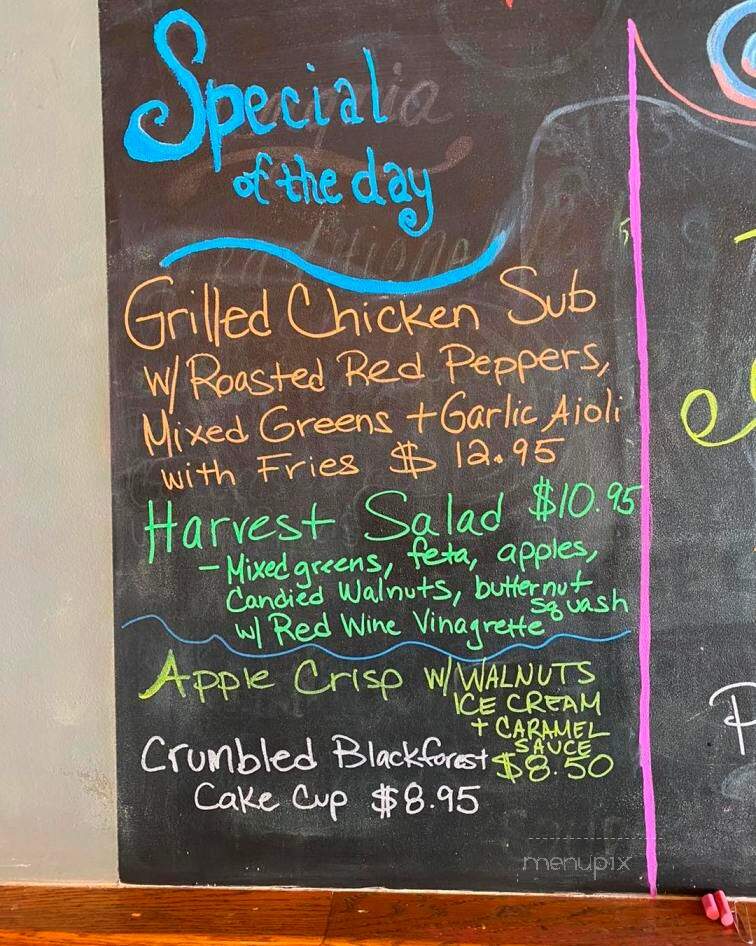 Special
of the day
Grilled Chicken Sub
w/ Roasted Red Peppers,
Mixed Greens + Garlic Aioli
with Fries $ 12.95
Harvest Salad $10.95
- Mixed greens, feta, apples,
Candied Walnuts, butternut
squash
w/ Red Wine Vinagrette
Apple Crisp w/ WALNUTS
ICE CREAM
+ CARAMEL
SAUCE
$8.50
Crumbled Blackforest
Cake Cup $8.95
menupix